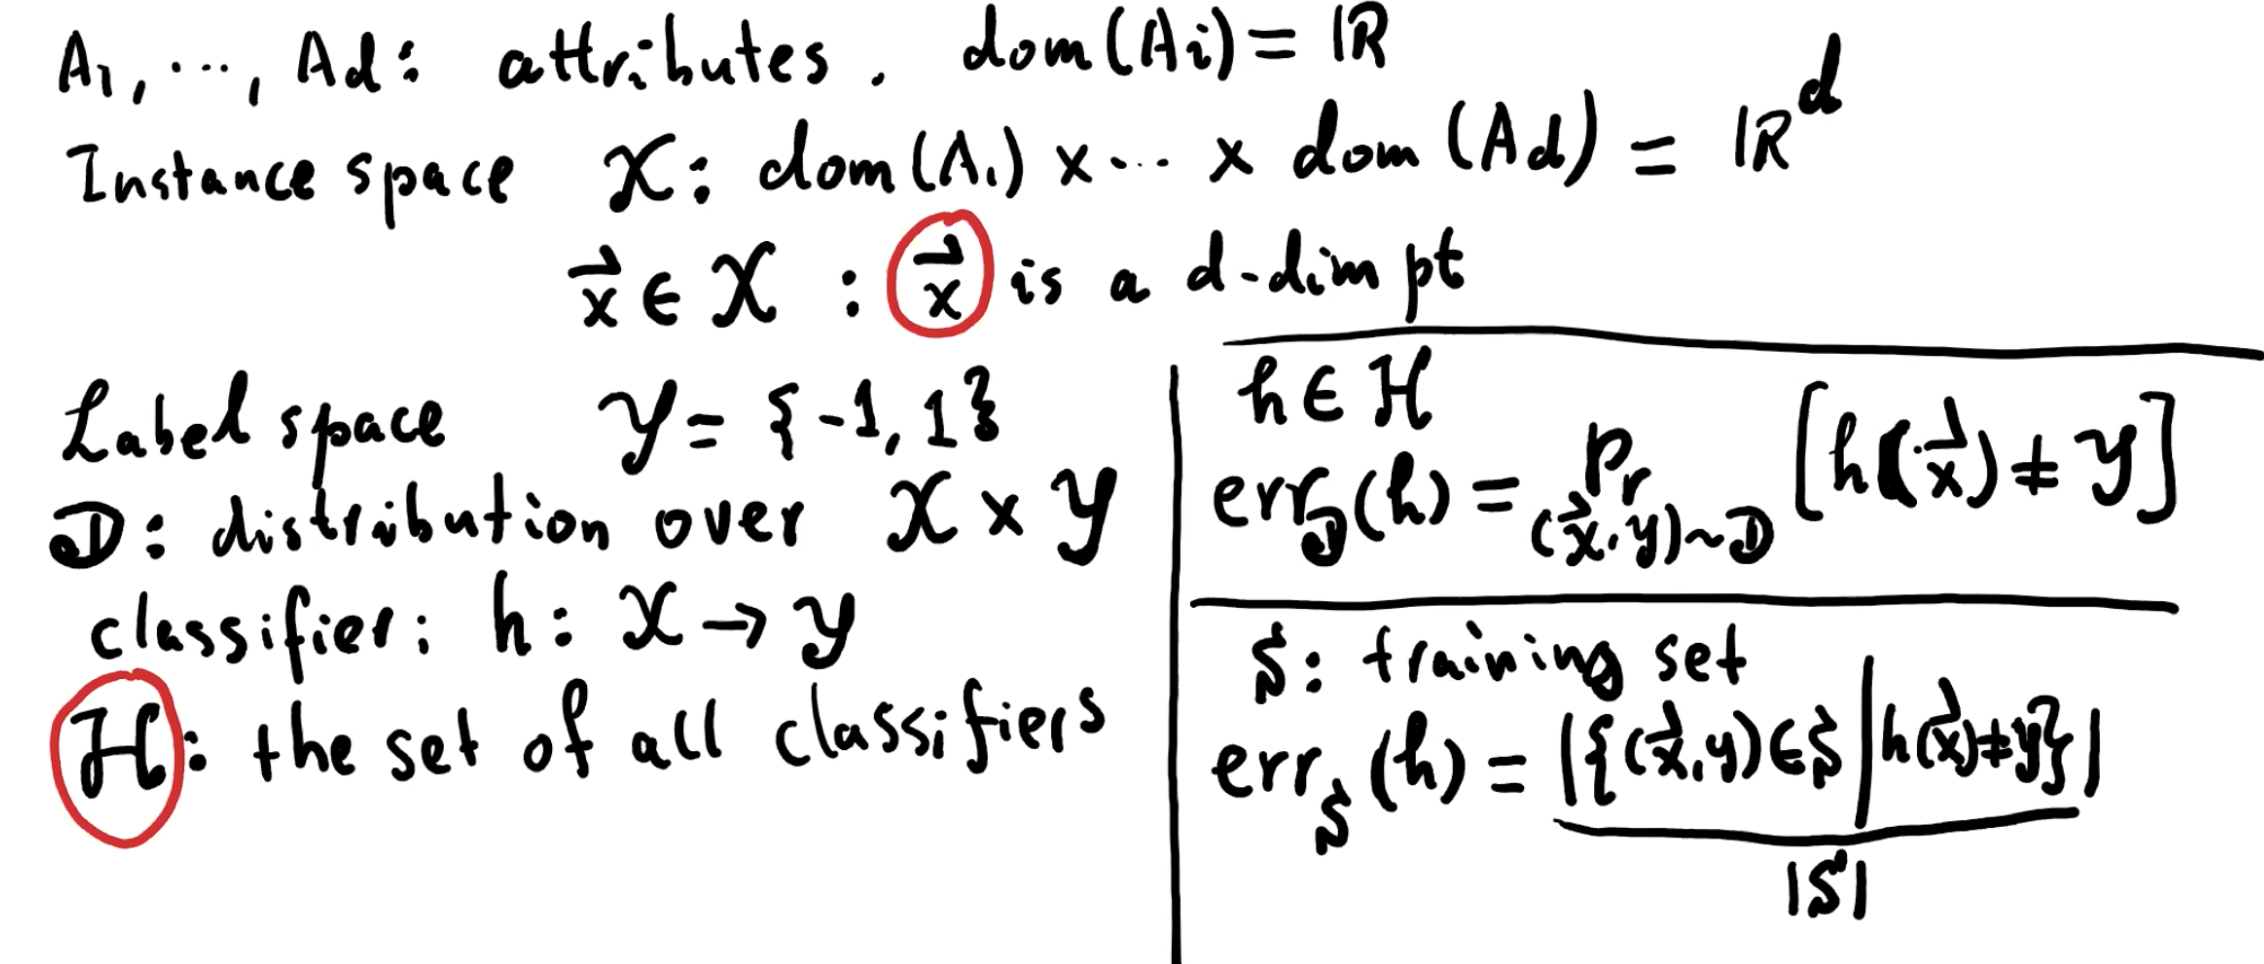 A₁, ..., Ad: attributes. dom(Ai) = ℝ
Instance space 𝒳: dom(A₁) × ... × dom(Ad) = ℝᵈ
x⃗ ∈ 𝒳 : x⃗ is a d-dim pt
Label space 𝒴 = {-1, 1}
𝒟: distribution over 𝒳 × 𝒴
classifier: h: 𝒳 → 𝒴
ℋ: the set of all classifiers
h ∈ ℋ
err_𝒟(h) = Pr_(x⃗,y)~𝒟 [h(x⃗) ≠ y]
S: training set
err_S(h) = |{(x⃗,y) ∈ S | h(x⃗) ≠ y}|
|S|